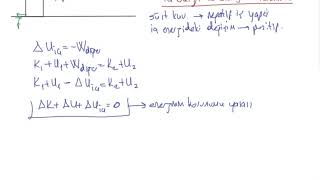 sürt kuv. → negatif iş yapar
iç enerjideki değişim → pozitif.
ΔU_iç = -W_diğer
K₁+U₁+W_diğer = K₂+U₂
K₁+U₁ - ΔU_iç = K₂+U₂
ΔK + ΔU + ΔU_iç = 0 → enerjinin korunumu yasası